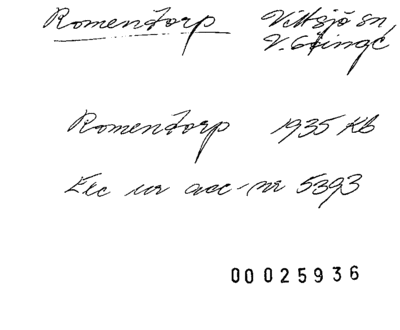 Romentorp Vittsjö sn,
V. Göinge
Romentorp 1935 Kb
Exc ur acc-nr 5393
00 025936